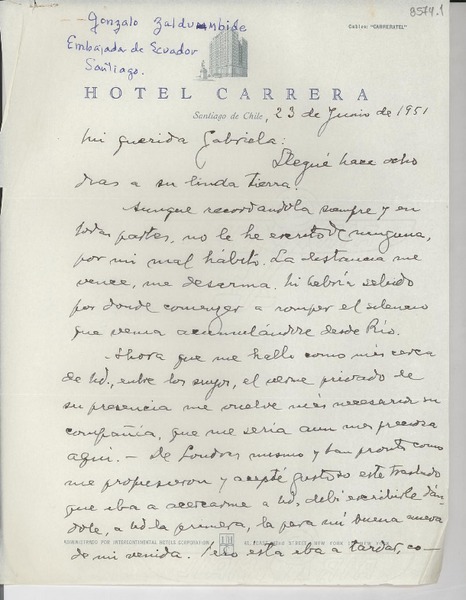 8574.1
Gonzalo Zaldumbide
Embajada de Ecuador
Santiago.
Cables "CARRERATEL"
HOTEL CARRERA
Santiago de Chile, 23 de Junio de 1951
Mi querida Gabriela:
Llegué hace ocho
dias a su linda tierra.
Aunque recordandola siempre y en
todas partes, no le he escrito de ninguna,
por mi mal hábito. La distancia me
vence, me desarma. Ni habría sabido
por donde comenzar a romper el silencio
que venia acumulándose desde Río.
Ahora que me hallo como más cerca
de Ud., entre los suyos, el verme privado de
su presencia me vuelve más necesaria su
compañía, que me seria aun mas preciosa
aqui. — De Londres mismo y tan pronto como
me propusieron y acepté gustoso este traslado
que iba a acercarme a Ud, debi escribirle dán
dole, a Ud la primera, la para mi buena nueva
ADMINISTRADO POR INTERCONTINENTAL HOTELS CORPORATION
de mi venida. Pero esta iba a tardar, co-